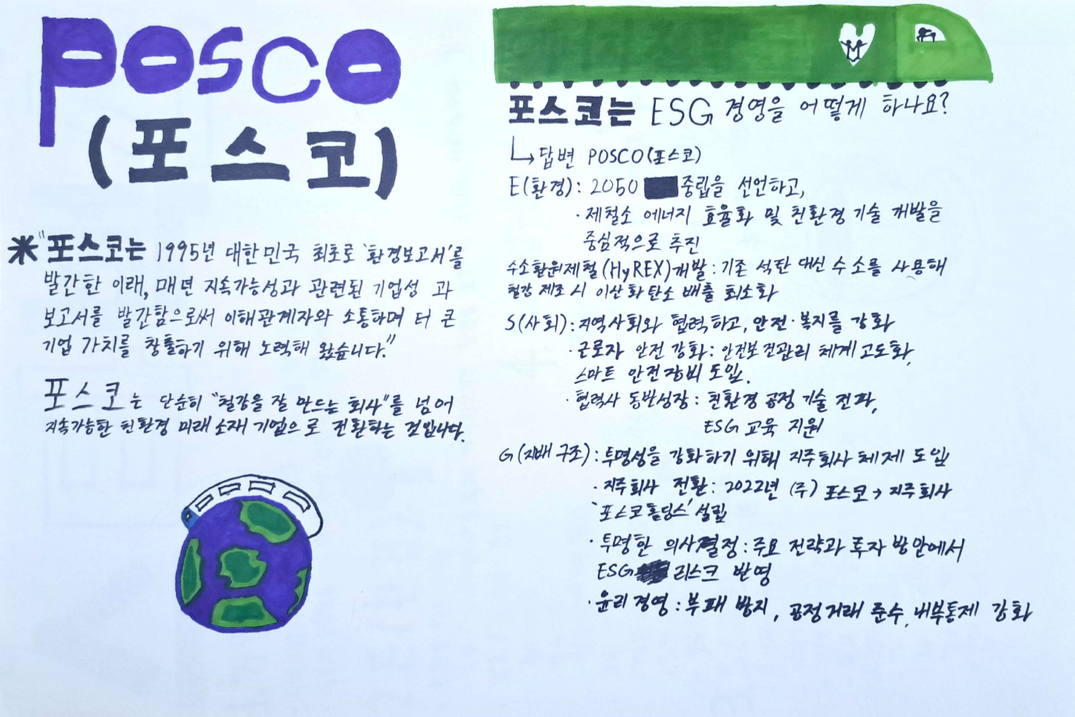 posco
(포스코)
※"포스코는 1995년 대한민국 최초로 '환경보고서'를
발간한 이래, 매년 지속가능성과 관련된 기업성 과
보고서를 발간함으로써 이해관계자와 소통하며 더 큰
기업 가치를 창출하기 위해 노력해 왔습니다."
포스코는 단순히 "철강을 잘 만드는 회사"를 넘어
지속가능한 친환경 미래 소재 기업으로 전환하는 것입니다.
포스코는 ESG 경영을 어떻게 하나요?
↳답변 POSCO(포스코)
E(환경): 2050 중립을 선언하고,
· 제철소 에너지 효율화 및 친환경 기술 개발을
중심적으로 추진
수소환원제철(HyREX)개발: 기존 석탄 대신 수소를 사용해
철강 제조 시 이산화탄소 배출 최소화
S(사회): 지역사회와 협력하고, 안전·복지를 강화
· 근로자 안전 강화: 안전보건관리 체계 고도화,
스마트 안전장비 도입.
· 협력사 동반성장: 친환경 공정 기술 전파,
ESG 교육 지원
G(지배 구조): 투명성을 강화하기 위해 지주회사 체제 도입
· 지주회사 전환: 2022년 (주) 포스코→지주회사
'포스코홀딩스' 설립
· 투명한 의사결정: 주요 전략과 투자 방안에서
ESG 리스크 반영
· 윤리경영: 부패 방지, 공정거래 준수, 내부통제 강화